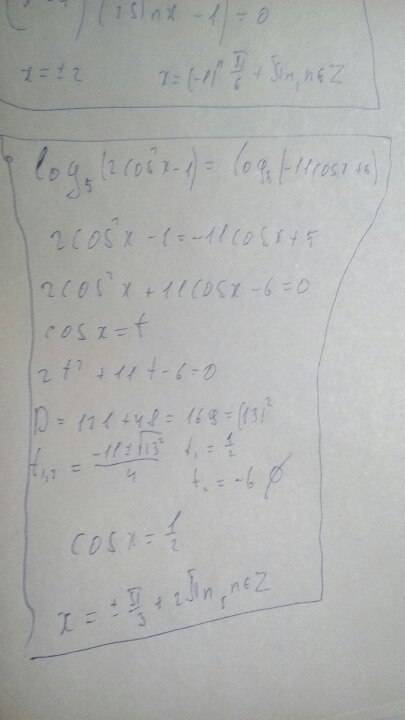 (2sinx - 1) = 0
x = ± 2    x = (-1)ⁿ π/6 + πn, n∈Z
log₅(2cos²x-1) = log₅(-11cosx+5)
2cos²x - 1 = -11cosx + 5
2cos²x + 11cosx - 6 = 0
cosx = t
2t² + 11t - 6 = 0
D = 121 + 48 = 169 = (13)²
t₁,₂ = (-11 ± √13²)/4    t₁ = 1/2
t₂ = -6 ∅
cosx = 1/2
x = ± π/3 + 2πn, n∈Z